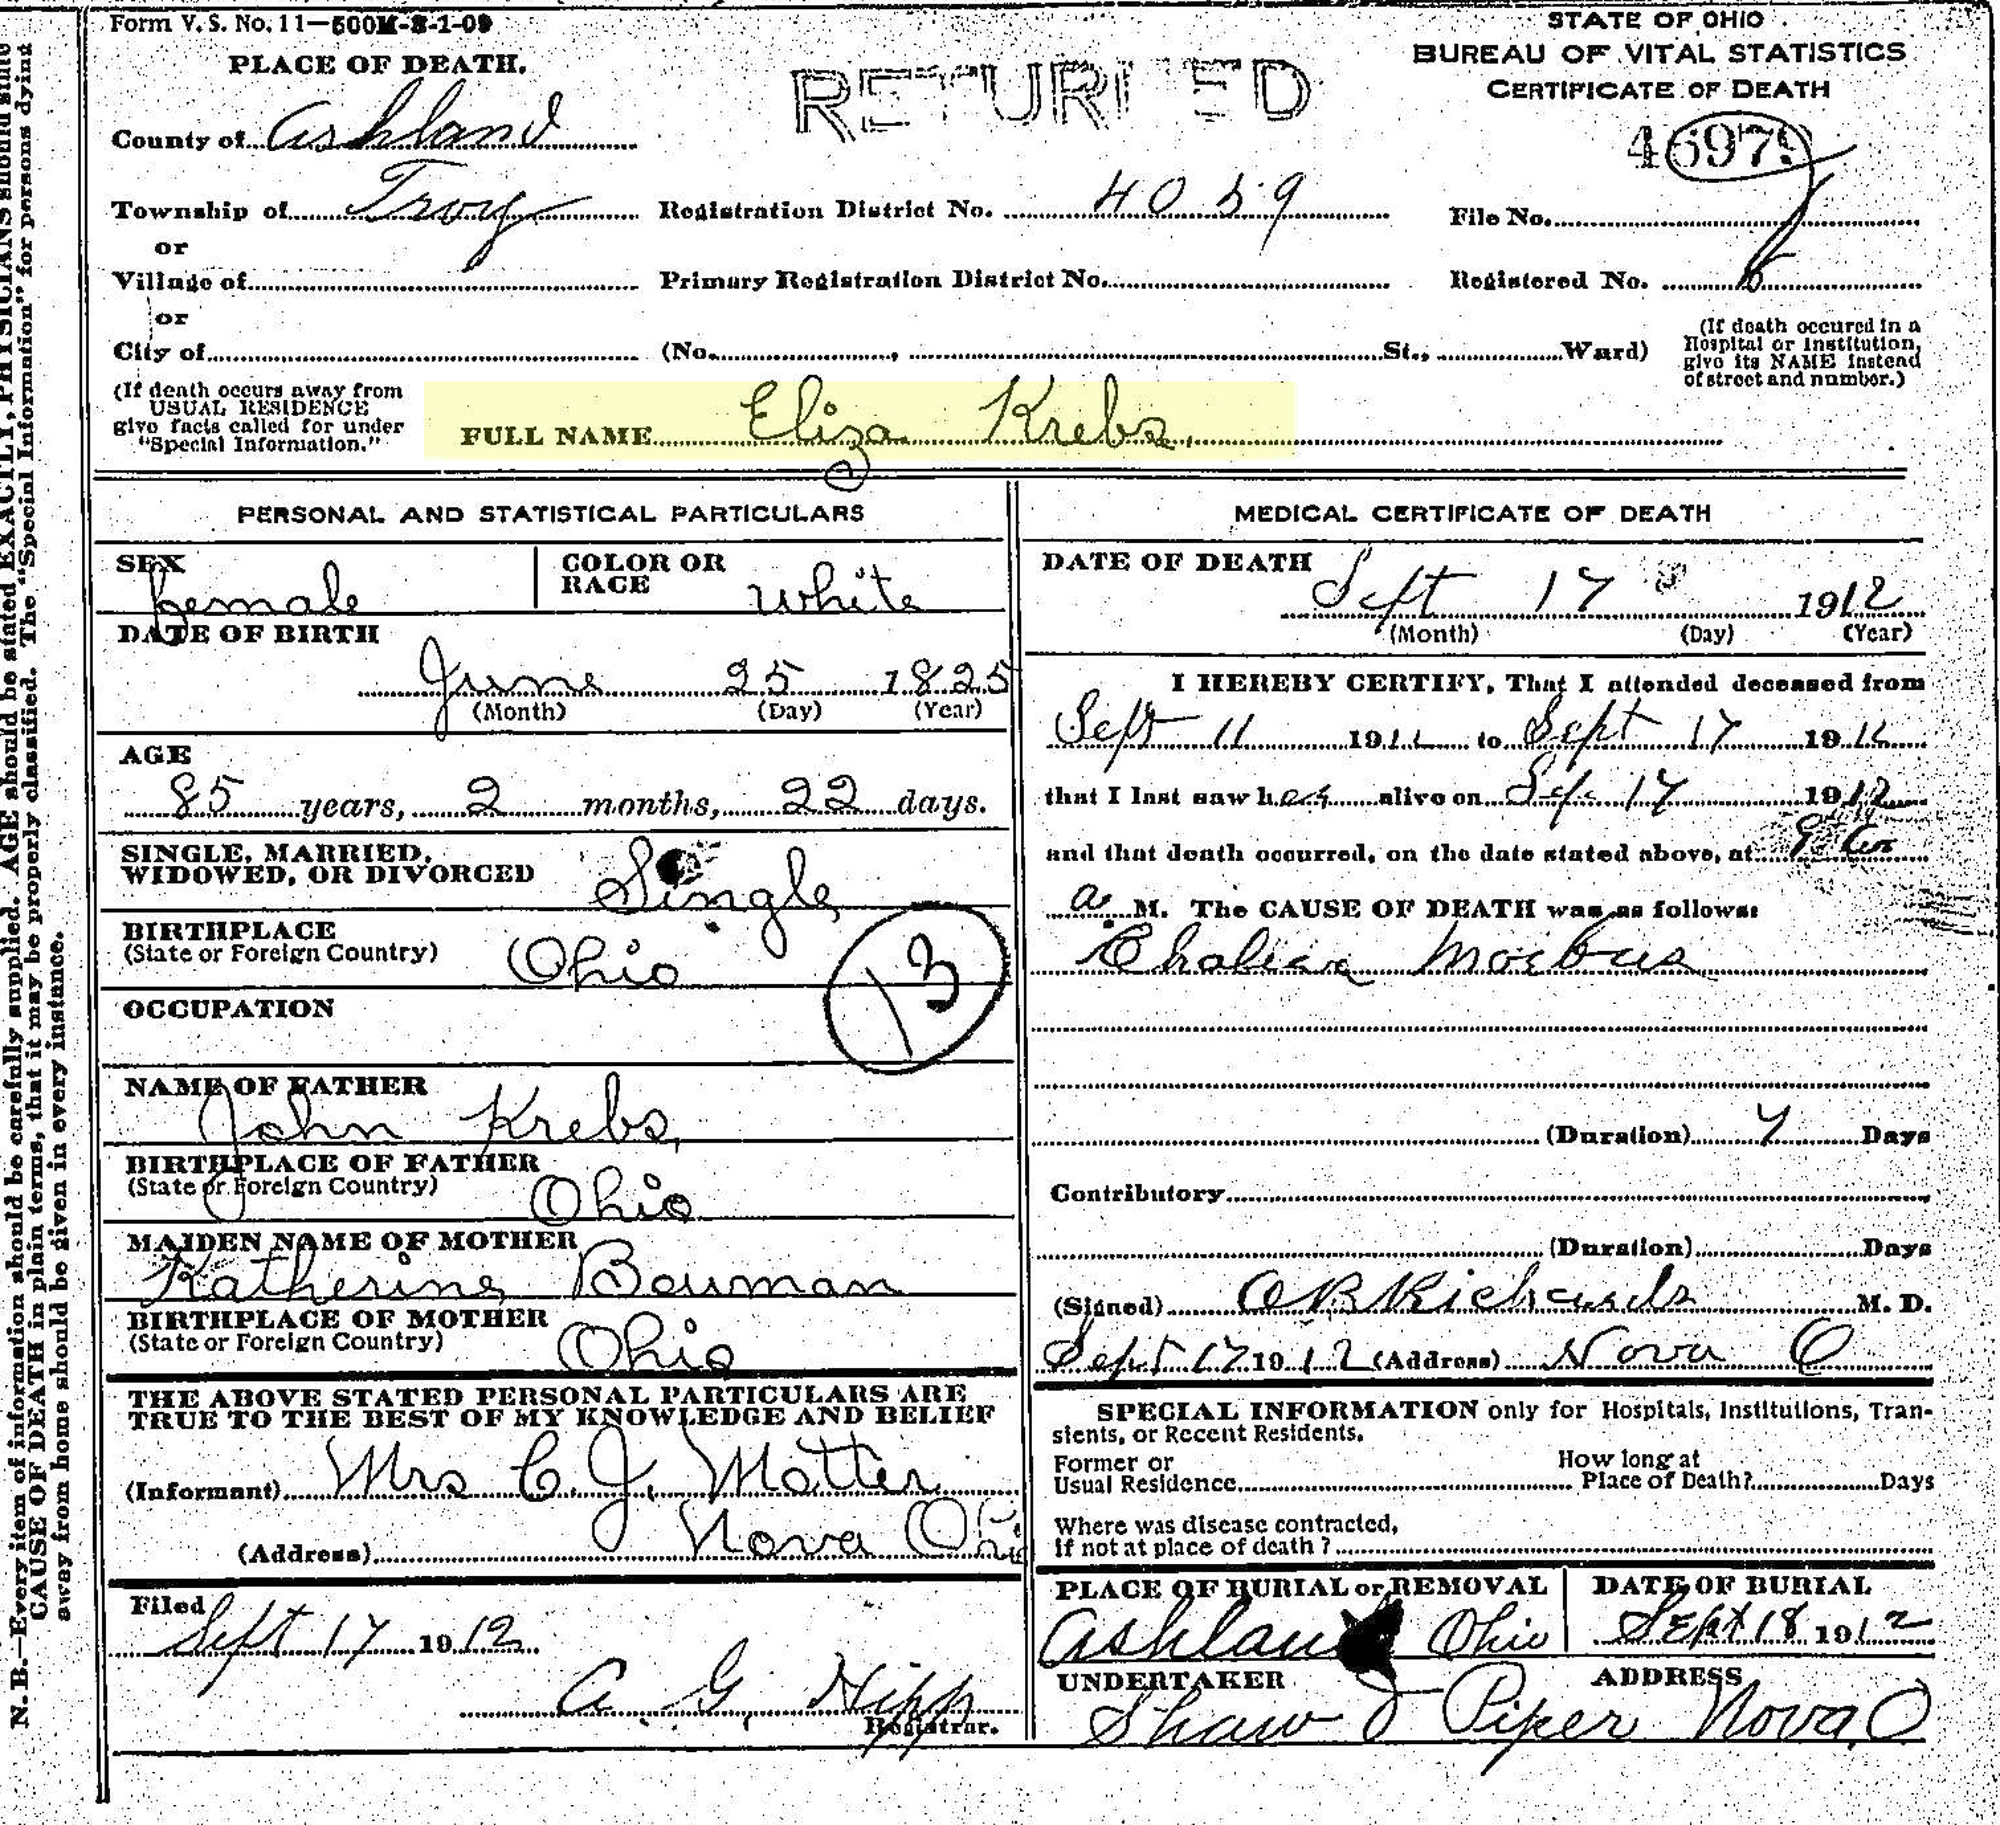 Form V. S. No. 11—500M-3-1-09
STATE OF OHIO
BUREAU OF VITAL STATISTICS
CERTIFICATE OF DEATH
RETURNED
PLACE OF DEATH.
County of Ashland
Township of Troy Registration District No. 4059 File No.
or
Village of Primary Registration District No. Registered No.
or
City of (No. , St., Ward)
(If death occured in a
Hospital or Institution,
give its NAME instead
of street and number.)
(If death occurs away from
USUAL RESIDENCE
give facts called for under
"Special Information."
FULL NAME Eliza Krebs
PERSONAL AND STATISTICAL PARTICULARS
SEX female COLOR OR RACE White
DATE OF BIRTH
June 25 1825
(Month) (Day) (Year)
AGE
85 years, 2 months, 22 days.
SINGLE, MARRIED,
WIDOWED, OR DIVORCED Single
BIRTHPLACE
(State or Foreign Country) Ohio
13
OCCUPATION
NAME OF FATHER
John Krebs
BIRTHPLACE OF FATHER
(State or Foreign Country) Ohio
MAIDEN NAME OF MOTHER
Katherine Bouman
BIRTHPLACE OF MOTHER
(State or Foreign Country) Ohio
THE ABOVE STATED PERSONAL PARTICULARS ARE
TRUE TO THE BEST OF MY KNOWLEDGE AND BELIEF
(Informant) Mrs C. J. Motter
(Address) Nova Ohio
Filed
Sept 17 1912
A G Hipp
Registrar.
MEDICAL CERTIFICATE OF DEATH
DATE OF DEATH
Sept 17 1912
(Month) (Day) (Year)
I HEREBY CERTIFY, That I attended deceased from
Sept 11 1912 to Sept 17 1912
that I last saw her alive on Sep. 17 1912
and that death occurred, on the date stated above, at
a M. The CAUSE OF DEATH was as follows:
Cholera Morbus
(Duration) 7 Days
Contributory
(Duration) Days
(Signed) O B Richards M. D.
Sept 17 1912 (Address) Nova O
SPECIAL INFORMATION only for Hospitals, Institutions, Tran-
sients, or Recent Residents.
Former or
Usual Residence
How long at
Place of Death? Days
Where was disease contracted,
If not at place of death ?
PLACE OF BURIAL or REMOVAL
Ashland Ohio
DATE OF BURIAL
Sept 18 1912
UNDERTAKER ADDRESS
Shaw & Piper Nova, O
N. B.—Every item of information should be carefully supplied. AGE should be stated EXACTLY, PHYSICIANS should state
CAUSE OF DEATH in plain terms, that it may be properly classified. The "Special Information" for persons dying
away from home should be given in every instance.